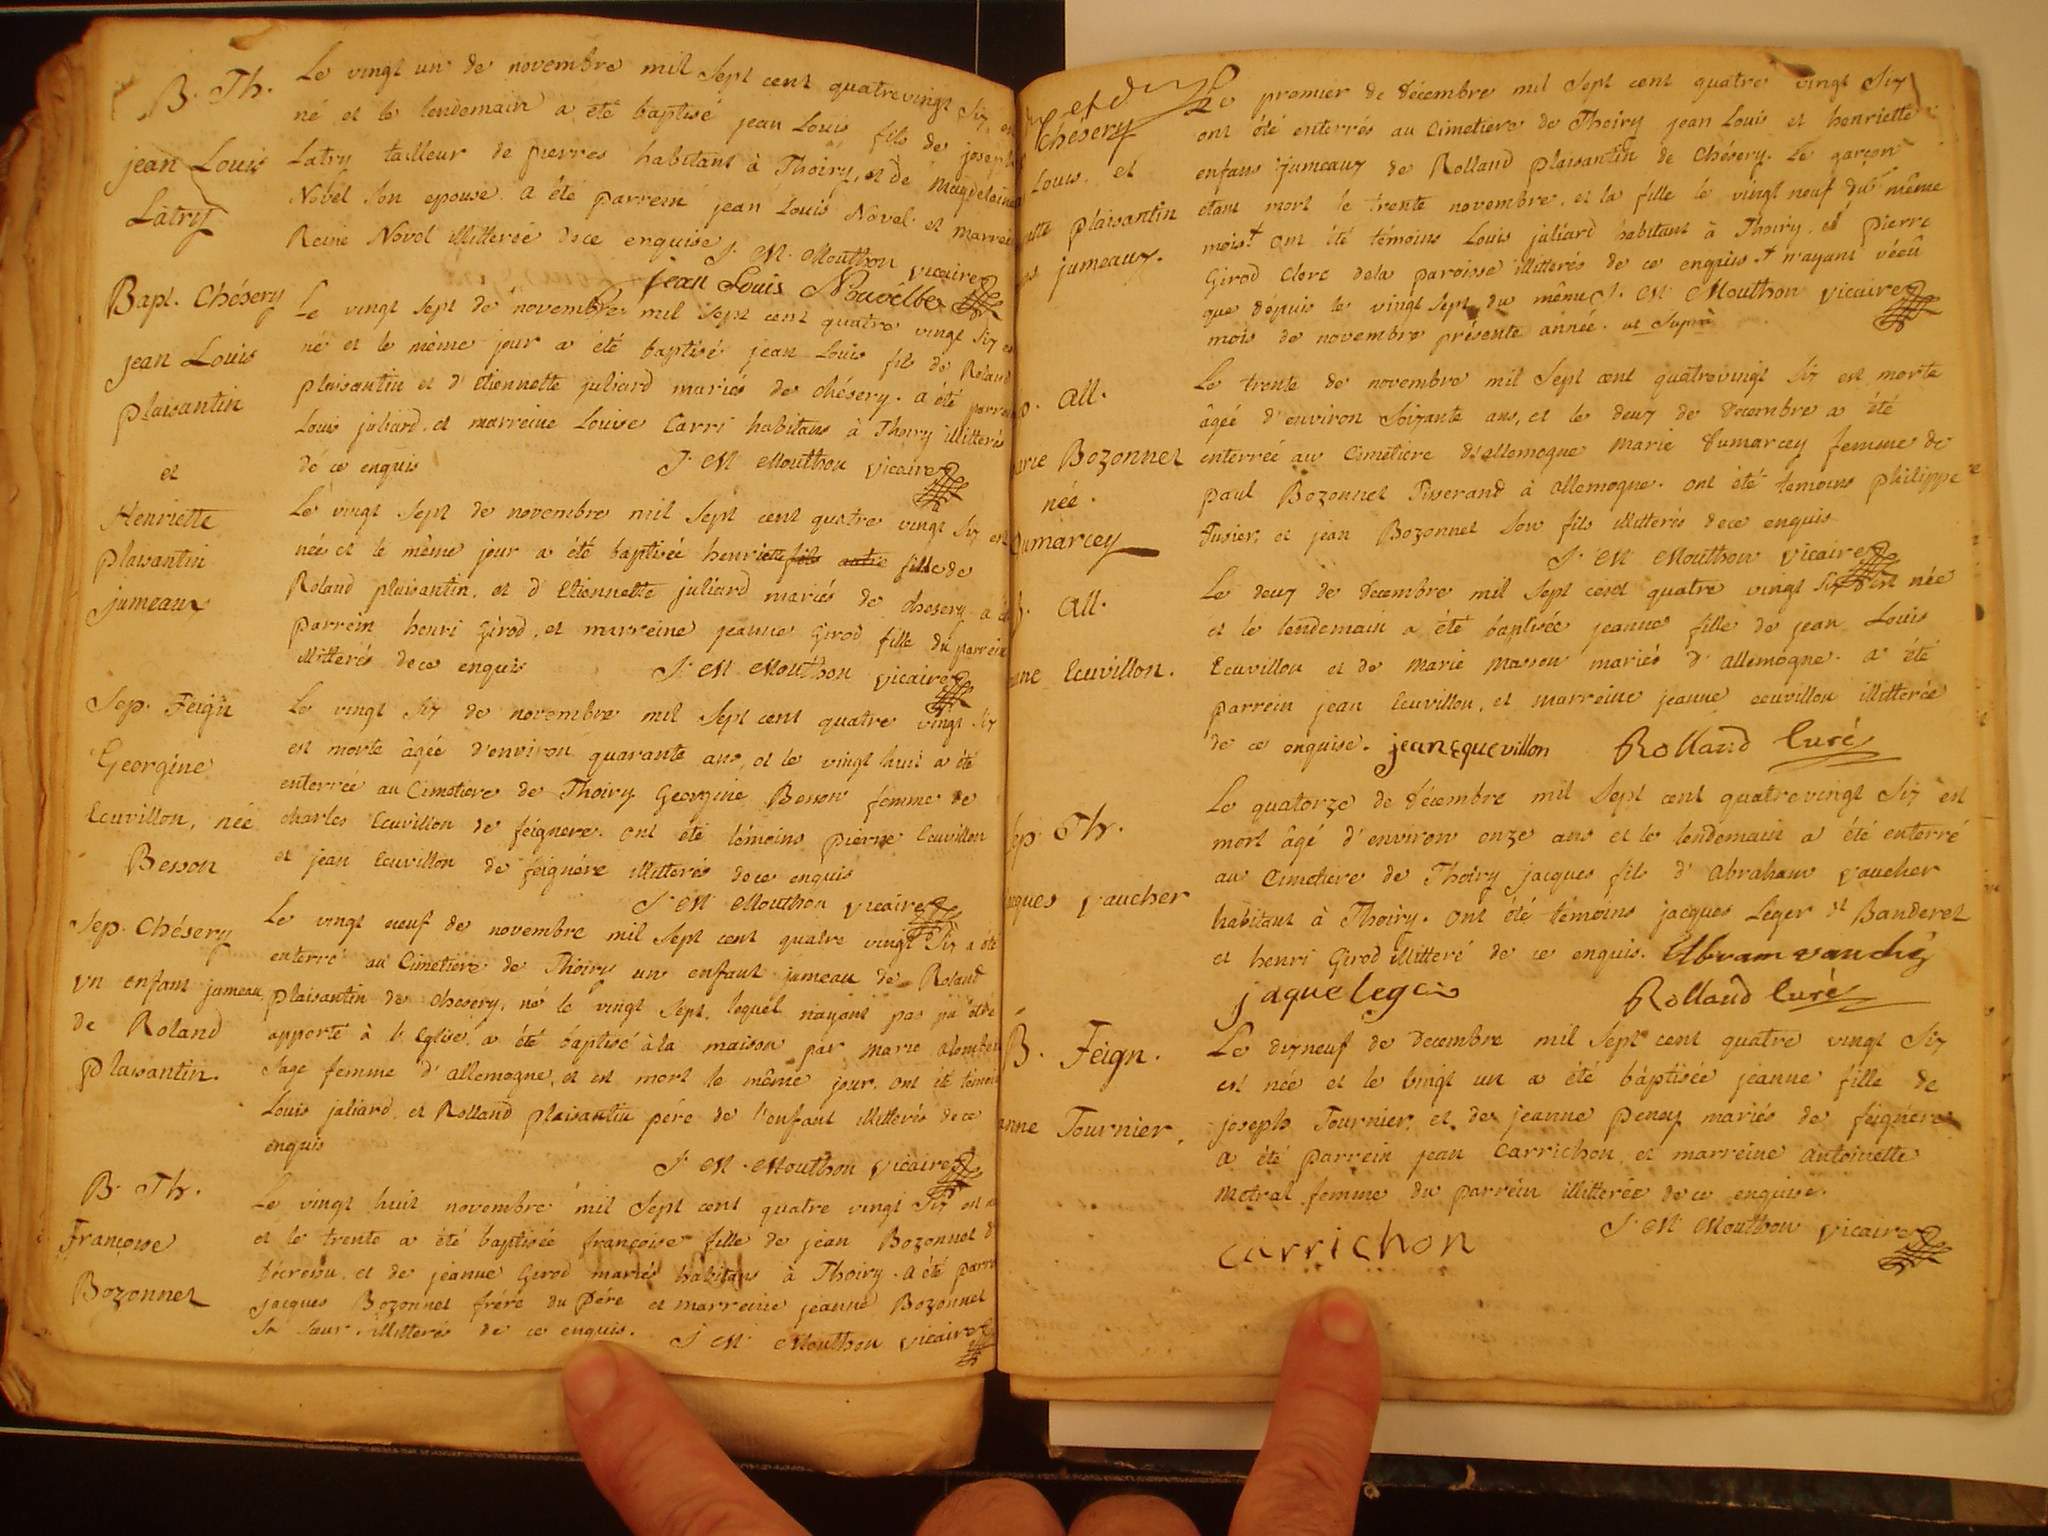 B. Th.
jean Louis
Latry
Le vingt un de novembre mil sept cent quatrevingt six, est
né et le lendemain a été baptisé jean Louis fils de joseph
Latry tailleur de pierres habitant à Thoiry, et de Magdelaine
Novel son epouse. a été parrein jean Louis Novel. et marreine
Reine Novel illitterée de ce enquise
J. M. Mouthon vicaire
jean Louis
Bapt. Chésery
jean Louis
plaisantin
et
Henriette
plaisantin
jumeaux
Le vingt sept de novembre mil sept cent quatre vingt six est
né et le même jour a été baptisé jean Louis fils de Roland
plaisantin et d'Etiennette juliard mariés de chésery. a été parrein
Louis juliard, et marreine Louise Carri habitans à Thoiry illitterés
de ce enquis J. M. Mouthon vicaire
Le vingt sept de novembre mil sept cent quatre vingt six est
née et le même jour a été baptisée henriette fils autre fille de
Roland plaisantin, et d'Etiennette juliard mariés de chesery a été
parrein henri Girod, et marreine jeanne Girod fille du parrein
illitterés de ce enquis J. M. Mouthon vicaire
Sep. Feign
Georgine
Ecuvillon, née
Besson
Le vingt six de novembre mil sept cent quatre vingt six
est morte âgée d'environ quarante ans, et le vingt huit a été
enterrée au Cimetiere de Thoiry Georgine Besson femme de
charles Ecuvillon de feignere. ont été témoins pierre Ecuvillon
et jean Ecuvillon de feignére illitterés de ce enquis
J. M. Mouthon vicaire
Sep. Chésery
un enfant jumeau
de Roland
plaisantin.
Le vingt neuf de novembre mil sept cent quatre vingt six a été
enterré au Cimetiere de Thoiry un enfant jumeau de Roland
plaisantin de chesery, né le vingt sept, lequel n'ayant pas pu être
apporté à l'Eglise, a été baptisé à la maison par marie
sage femme d'allemogne, et est mort le même jour. ont été témoins
Louis juliard, et Rolland plaisantin pére de l'enfant illitterés de ce
enquis
J. M. Mouthon vicaire
B. Th.
Françoise
Bozonnet
Le vingt huit novembre mil sept cent quatre vingt six est née
et le trente a été baptisée françoise fille de jean Bozonnet
et de jeanne Girod mariés habitans à Thoiry. a été parrein
jacques Bozonnet frère du pére et marreine jeanne Bozonnet
sa sœur. illitterés de ce enquis. J. M. Mouthon vicaire
Chésery
Louis et
plaisantin
jumeaux.
Le premier de décembre mil sept cent quatre vingt six
ont été enterrés au Cimetiere de Thoiry jean Louis et henriette
enfans jumeaux de Rolland plaisantin de chésery. Le garçon
étant mort le trente novembre, et la fille le vingt neuf du même
mois† ont été témoins Louis juliard habitant à Thoiry, et pierre
Girod clerc de la paroisse illitterés de ce enquis † n'ayant vécû
que dépuis le vingt sept du même J. M. Mouthon vicaire
mois de novembre présente année. ut supra
All.
marie Bozonnet
née.
Dumarcey
Le trente de novembre mil sept cent quatrevingt six est morte
âgée d'environ soixante ans, et le deux de Decembre a été
enterrée au Cimetiere d'allemogne marie Dumarcey femme de
paul Bozonnet Tisserand à allemogne. ont été temoins philippe
Fusier, et jean Bozonnet son fils illitterés de ce enquis
J. M. Mouthon vicaire
B. All.
Ecuvillon.
Le deux de Decembre mil sept cent quatre vingt six est née
et le lendemain a été baptisée jeanne fille de jean Louis
Ecuvillon et de marie masson mariés d'allemogne. a été
parrein jean Ecuvillon, et marreine jeanne ecuvillon illitterée
de ce enquise. jean equevillon Rolland Curé
Sep. Th.
jacques vaucher
Le quatorze de Décembre mil sept cent quatrevingt six est
mort âgé d'environ onze ans et le lendemain a été enterré
au Cimetiere de Thoiry jacques fils d'Abraham vaucher
habitant à Thoiry. ont été témoins jacques Leger dt Banderet
et henri Girod illitteré de ce enquis. Abram
jaque Rolland Curé
B. Feign.
jeanne Tournier.
Le dixneuf de Decembre mil sept cent quatre vingt six
est née et le vingt un a été baptisée jeanne fille de
joseph Tournier, et de jeanne peney mariés de feignere
a été parrein jean Carrichon et marreine Antoinette
metral femme du parrein illitterée de ce enquise.
J. M. Mouthon vicaire
carrichon